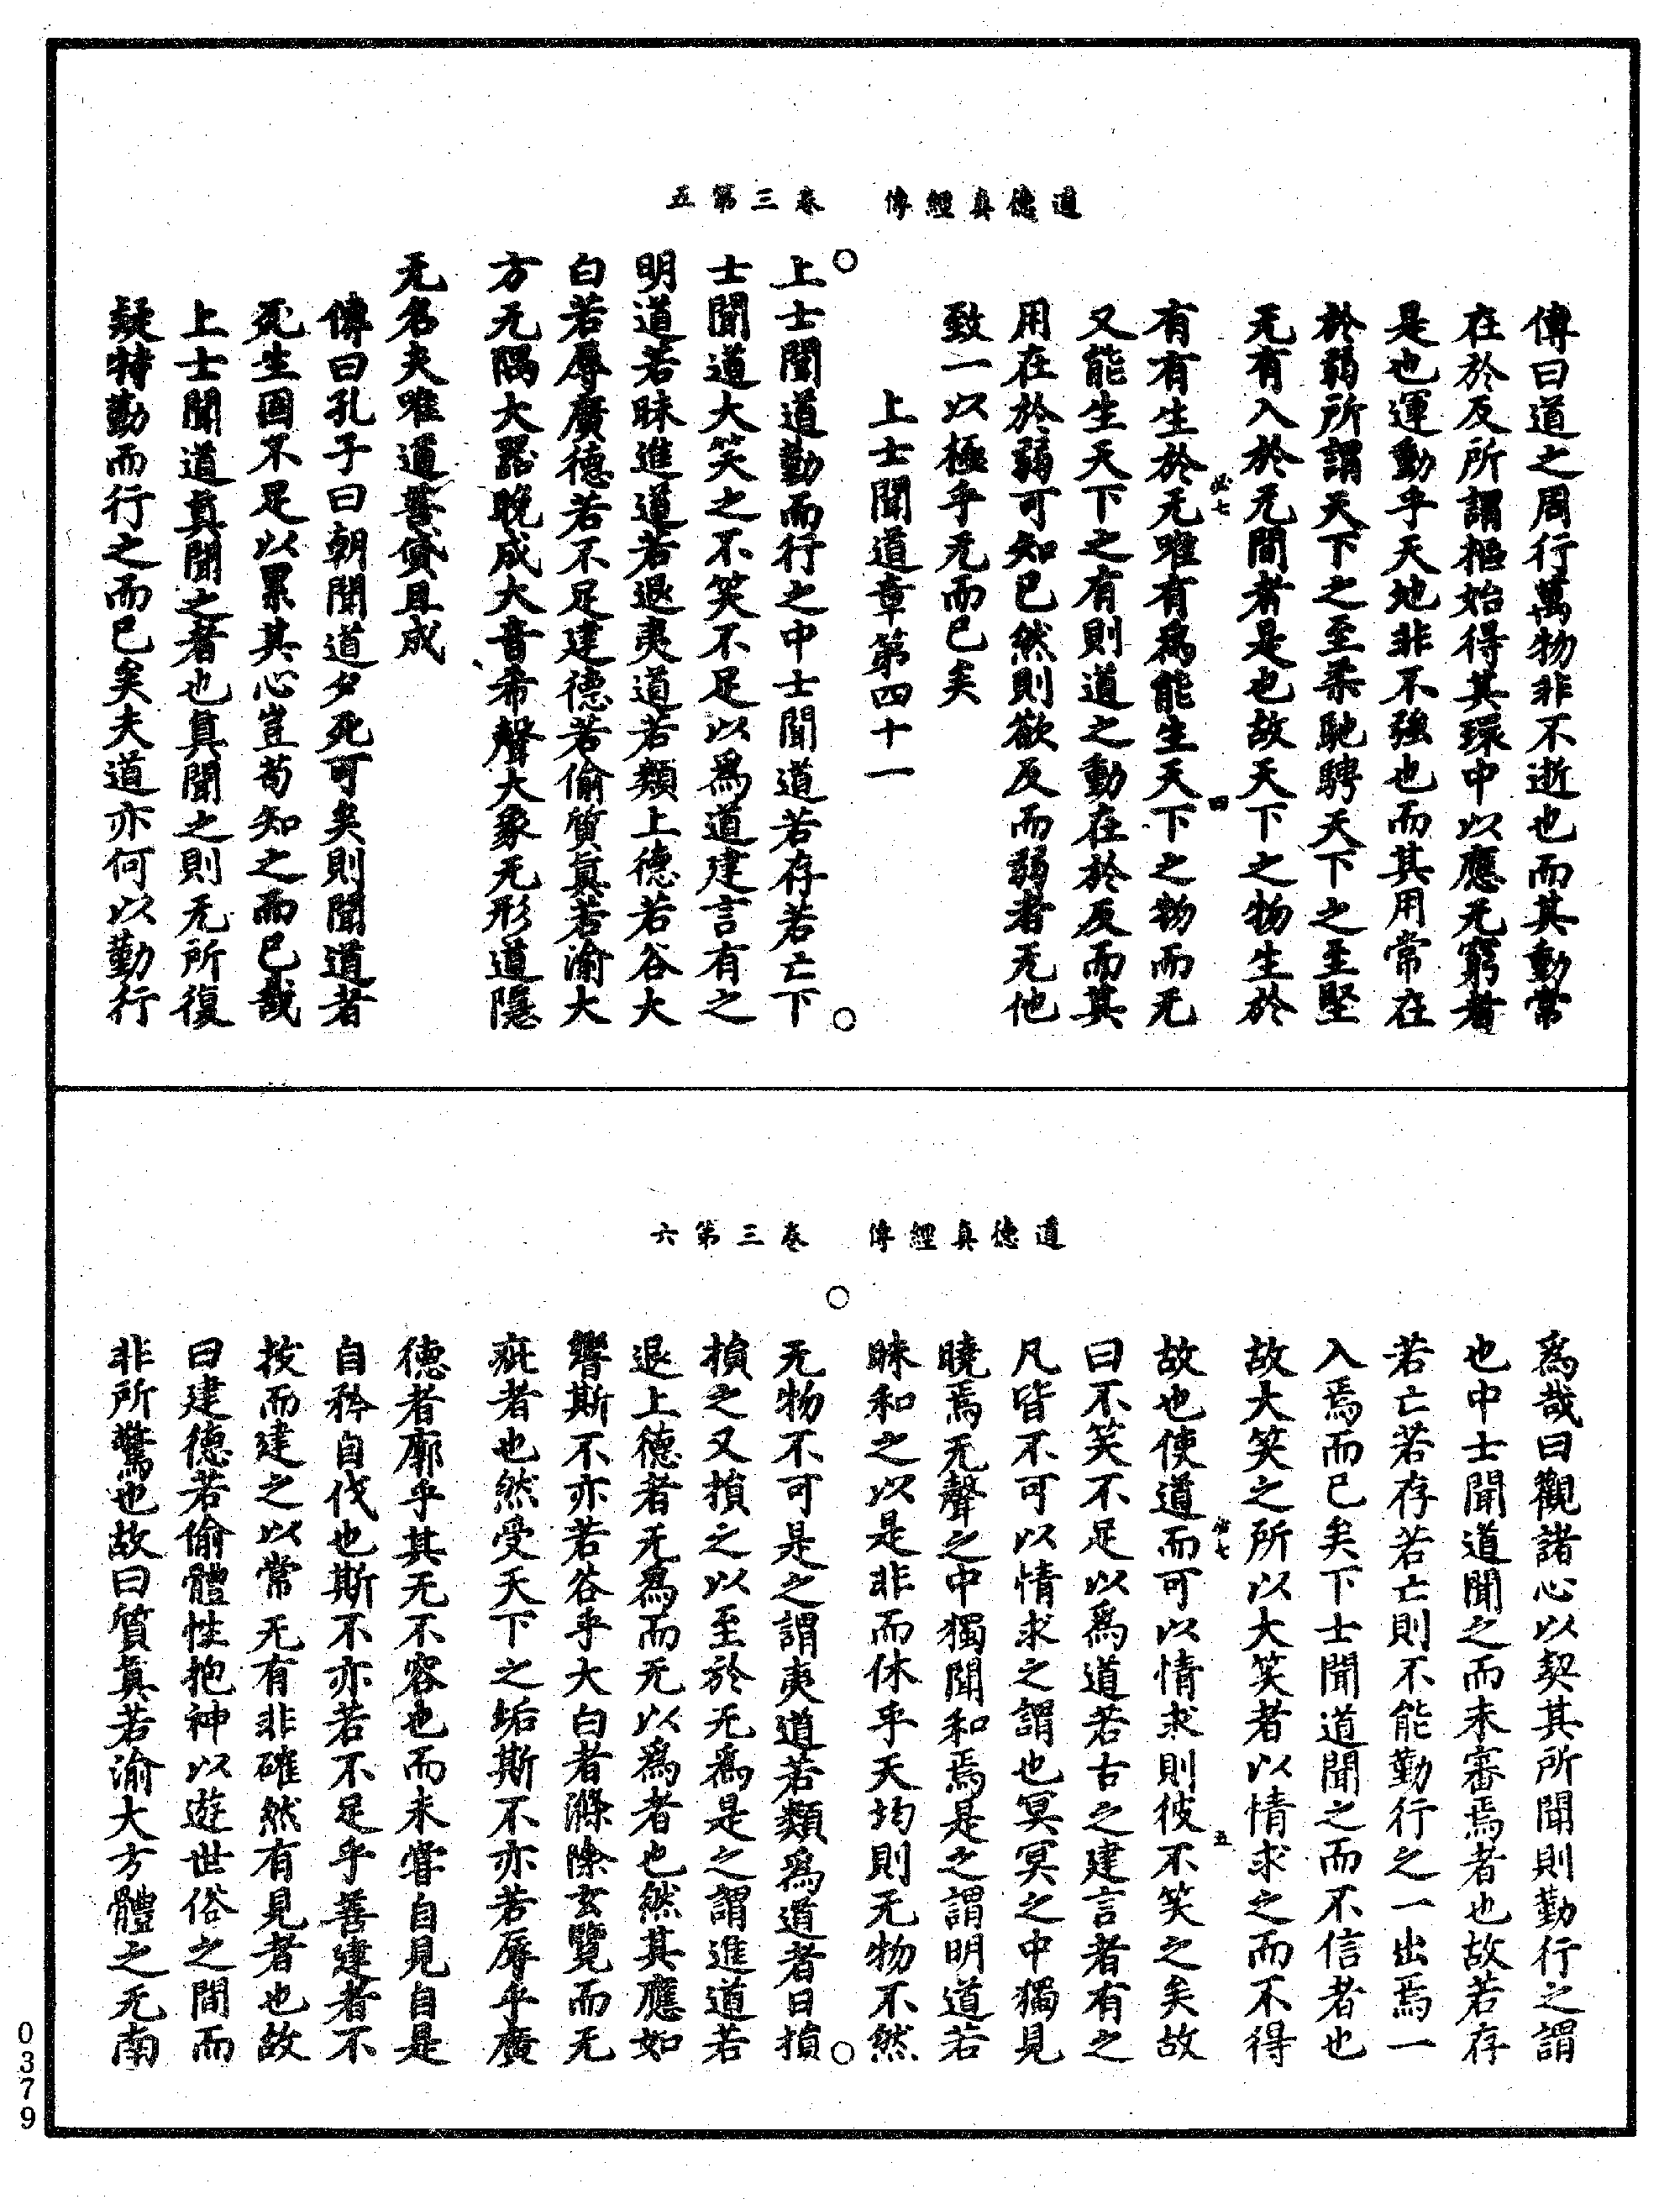 道德真經傳　卷三第五
傳曰道之周行萬物非不逝也而其動常
在於反所謂樞始得其環中以應无窮者
是也運動乎天地非不強也而其用常在
於弱所謂天下之至柔馳騁天下之至堅
无有入於无間者是也故天下之物生於
必七　四
有有生於无唯有為能生天下之物而无
又能生天下之有則道之動在於反而其
用在於弱可知已然則欲反而弱者无他
致一以極乎无而已矣
上士聞道章第四十一
上士聞道勤而行之中士聞道若存若亡下
士聞道大笑之不笑不足以為道建言有之
明道若昧進道若退夷道若類上德若谷大
白若辱廣德若不足建德若偷質真若渝大
方无隅大器晚成大音希聲大象无形道隱
无名夫唯道善貸且成
傳曰孔子曰朝聞道夕死可矣則聞道者
死生固不足以累其心豈苟知之而已哉
上士聞道真聞之者也真聞之則无所復
疑特勤而行之而已矣夫道亦何以勤行
道德真經傳　卷三第六
為哉曰觀諸心以契其所聞則勤行之謂
也中士聞道聞之而未審焉者也故若存
若亡若存若亡則不能勤行之一出焉一
入焉而已矣下士聞道聞之而不信者也
故大笑之所以大笑者以情求之而不得
必七　五
故也使道而可以情求則彼不笑之矣故
曰不笑不足以為道若古之建言者有之
凡皆不可以情求之謂也冥冥之中獨見
曉焉无聲之中獨聞和焉是之謂明道若
昧和之以是非而休乎天均則无物不然
无物不可是之謂夷道若類為道者日損
損之又損之以至於无為是之謂進道若
退上德者无為而无以為者也然其應如
響斯不亦若谷乎大白者滌除玄覽而无
疵者也然受天下之垢斯不亦若辱乎廣
德者廓乎其无不容也而未嘗自見自是
自矜自伐也斯不亦若不足乎善建者不
拔而建之以常无有非確然有見者也故
曰建德若偷體性抱神以遊世俗之間而
非所驚也故曰質真若渝大方體之无南
0379